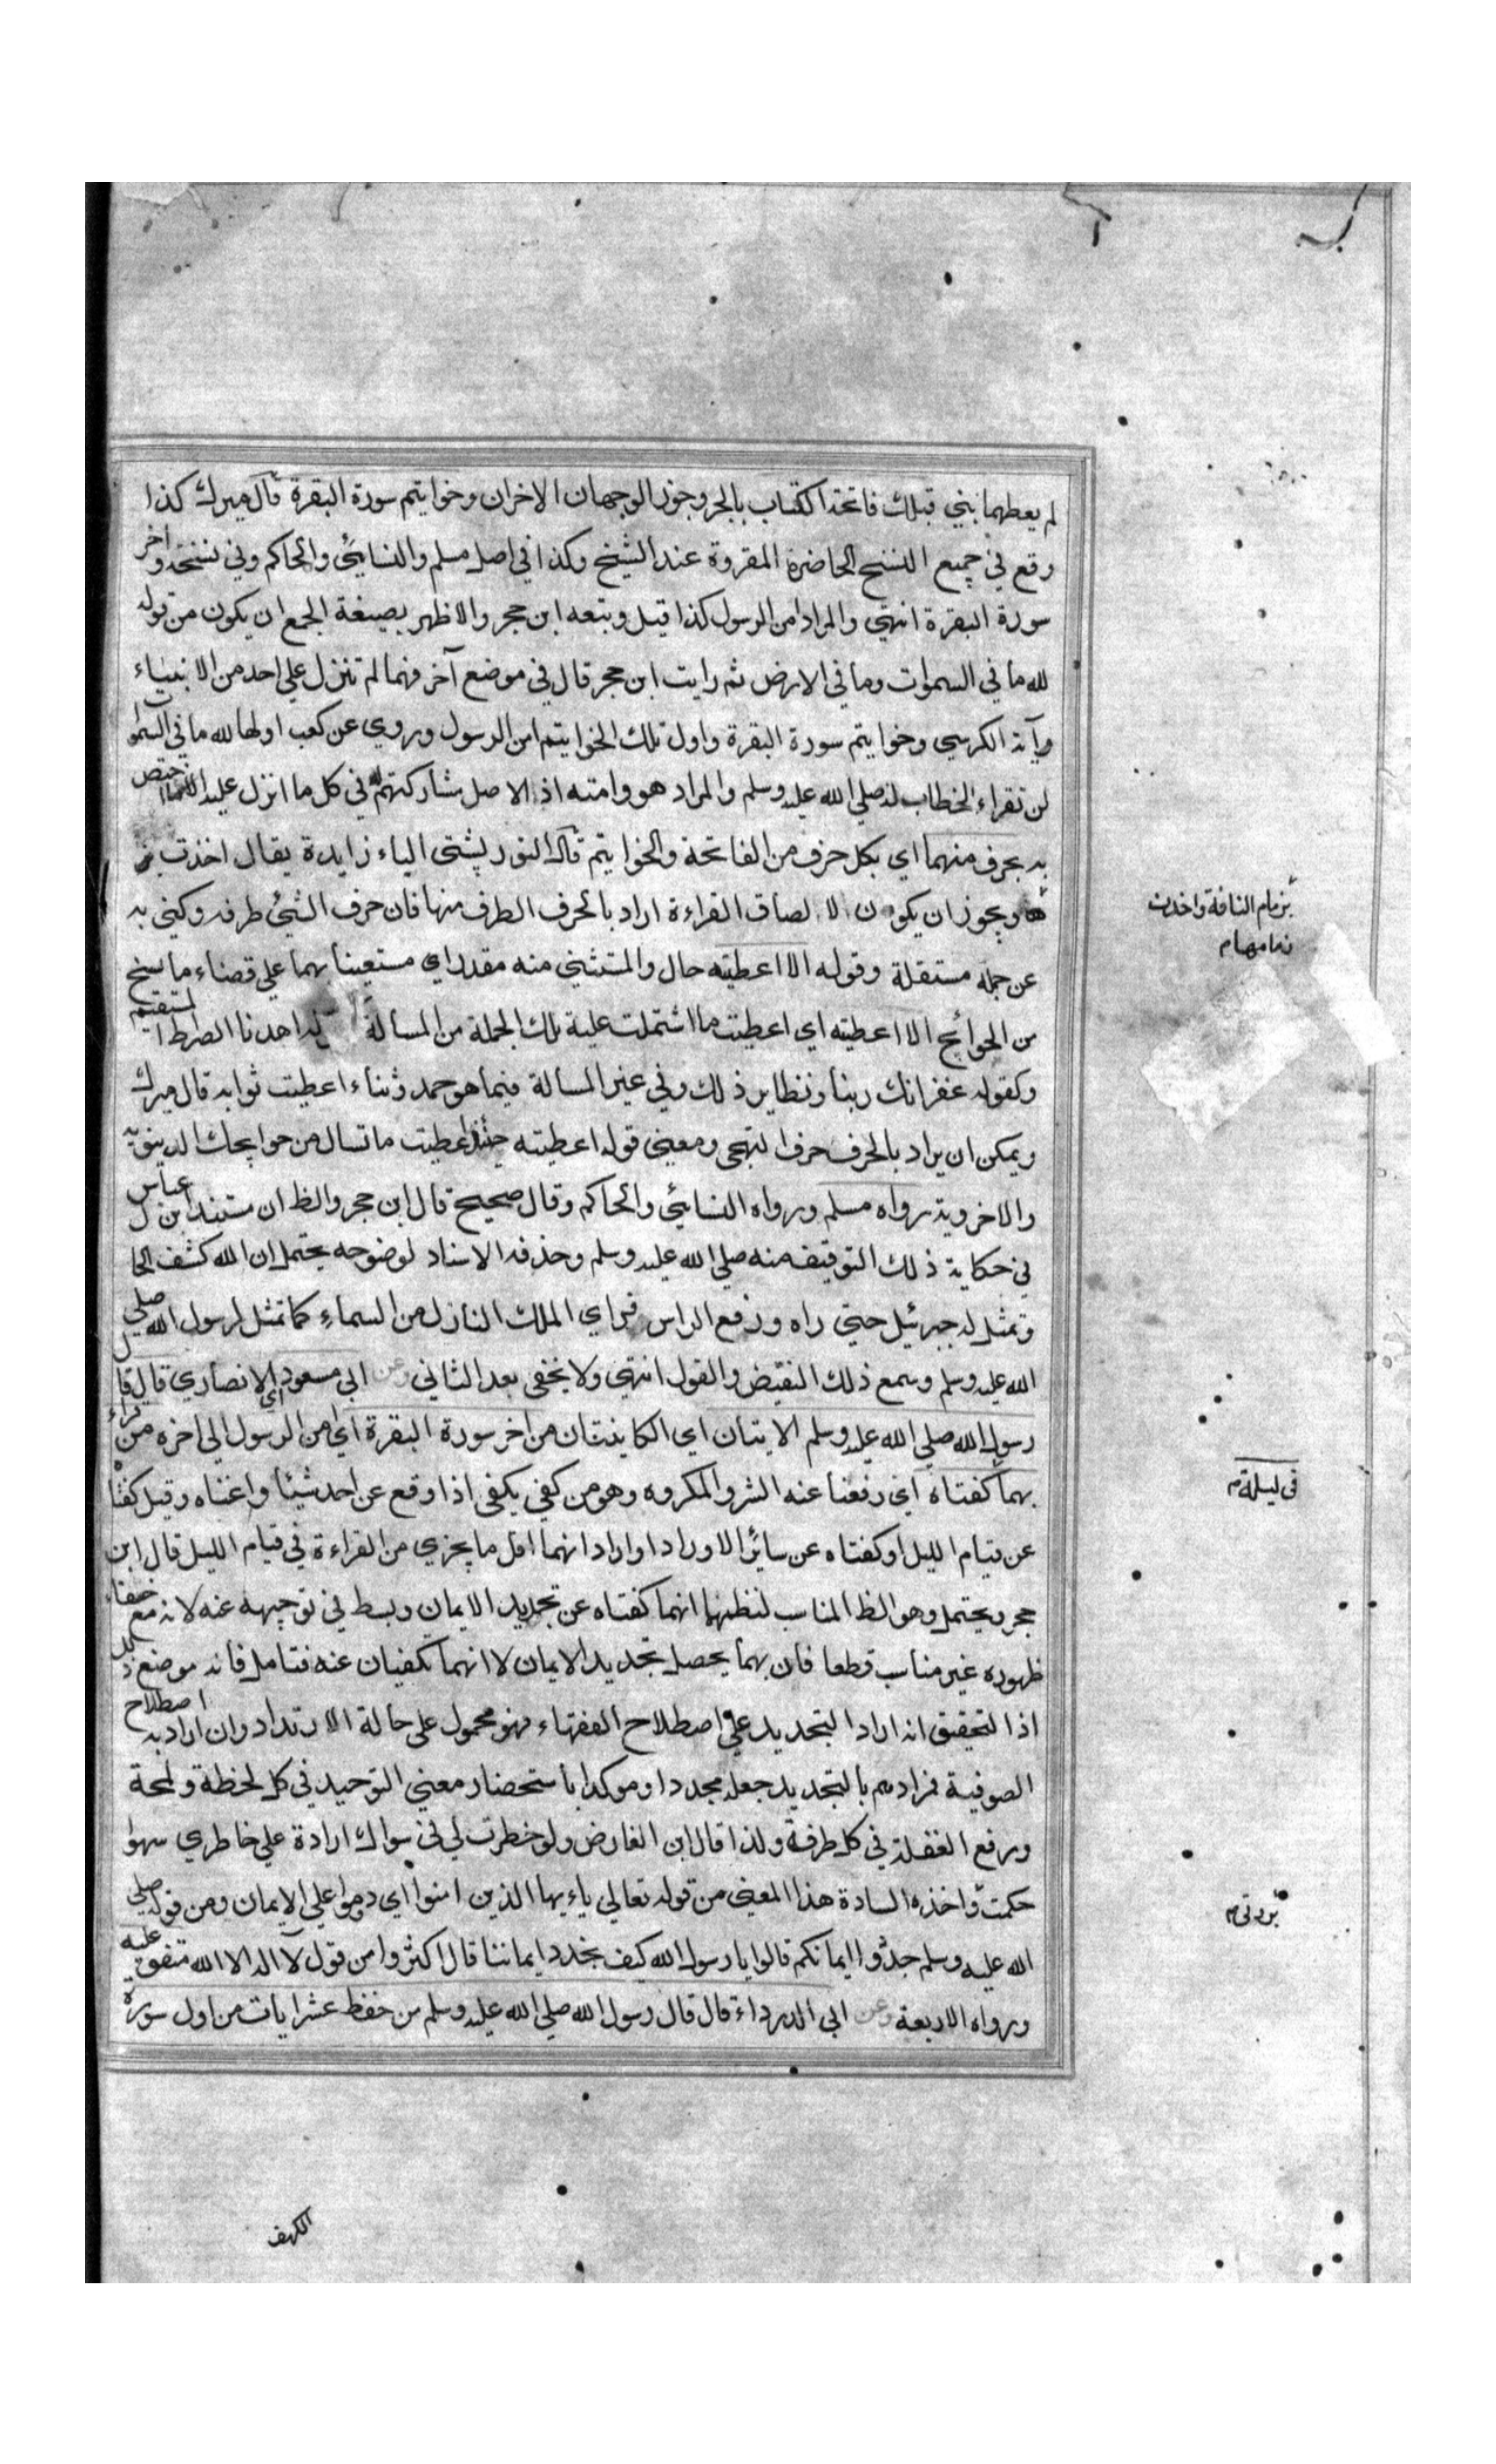 لم يعطهما نبي قبلك فاتحة الكتاب بالجر وجوز الوجهان الاخران وخواتيم سورة البقرة قال ميرك كذا
وقع في جميع النسخ الحاضرة المقروة عند الشيخ وكذا في اصل مسلم والنسائي والحاكم وفي نسخة واخر
سورة البقرة انتهى والمراد امن الرسول كذا قيل وتبعه ابن حجر والاظهر بصيغة الجمع ان يكون من قوله
لله ما في السموات وما في الارض ثم رايت ابن حجر قال في موضع آخر فهما لم تنزل على احد من الانبياء
وآية الكرسي وخواتيم سورة البقرة واول تلك الخواتيم امن الرسول وروي عن كعب اولها لله ما في السموات
لن تقراء الخطاب له صلي الله عليه وسلم والمراد هو وامته اذ الاصل مشاركتهم له في كل ما انزل عليه الا ما اختص
به بحرف منهما اي بكل حرف من الفاتحة والخواتيم قال التوربشتي الباء زايدة يقال اخذت
ويجوز ان يكون لالصاق القراءة اراد بالحرف الطرف منها فان حرف الشئ طرفه وكني به
عن جملة مستقلة وقوله الا اعطيته حال والمستثنى منه مقدر اي مستعينا بهما علي قضاء ما سنح
من الحوائج الا اعطيته اي اعطيت ما اشتملت عليه تلك الجملة من المسالة اهدنا الصراط المستقيم
وكقوله غفرانك ربنا ونظاير ذلك وفي غير المسالة فيما هو حمد وثناء اعطيت ثوابه قال ميرك
ويمكن ان يراد بالحرف حرف التهجي ومعنى قوله اعطيته حينئذ اعطيت ما تسال من حوايجك الدينوية
والاخروية رواه مسلم ورواه النسائي والحاكم وقال صحيح قال ابن حجر والظ ان مستند ابن عباس
في حكاية ذلك التوقيف منه صلي الله عليه وسلم وحذف الاسناد لوضوحه يحتمل ان الله كشف له الحال
وتمثل له جبرئيل حتى راه ورفع الراس فراي الملك النازل من السماء كما تمثل لرسول الله صلي
الله عليه وسلم وسمع ذلك النقيض والقول انتهى ولا يخفى بعد الثاني وعن ابي مسعود اي الانصاري قال قال
رسول الله صلي الله عليه وسلم الايتان اي الكاينتان من اخر سورة البقرة اي امن الرسول الي اخره من قراء
بهما كفتاه اي دفعنا عنه الشر والمكروه وهو من كفى يكفى اذا دفع عن احد شيئا واغناه وقيل كفتاه
عن قيام الليل او كفتاه عن سائر الاوراد او اراد انهما اقل ما يجزي من القراءة في قيام الليل قال ابن
حجر ويحتمل وهو الظ المناسب لنظمهما انهما كفتاه عن تجديد الايمان وبسط في توجيهه عنه لانه مع خفاء
ظهوره غير مناسب قطعا فان بهما يحصل تجديد الايمان لا انهما تكفيان عنه فتامل فانه موضع زلل
اذ التحقيق انه اراد التجديد علي اصطلاح الفقهاء فهو محمول على حالة الارتداد وان اراد به اصطلاح
الصوفية فمرادهم بالتجديد جعله مجددا وموكدا باستحضار معني التوحيد في كل لحظة ولمحة
ورفع الغفلة في كل طرفة ولذا قال ابن الفارض ولو خطرت لي في سواك ارادة علي خاطري سهوا
حكمت واخذه السادة هذا المعنى من قوله تعالي ياءيها الذين امنوا اي دوموا علي الايمان ومن قوله صلي
الله عليه وسلم جددوا ايمانكم قالوا يا رسول الله كيف نجدد ايماننا قال اكثروا من قول لا اله الا الله متفق عليه
ورواه الاربعة وعن ابي الدرداء قال قال رسول الله صلي الله عليه وسلم من حفظ عشر ايات من اول سورة
بزمام الناقة واخذت
زمامها م
في ليلة م
بردتي م
الكهف